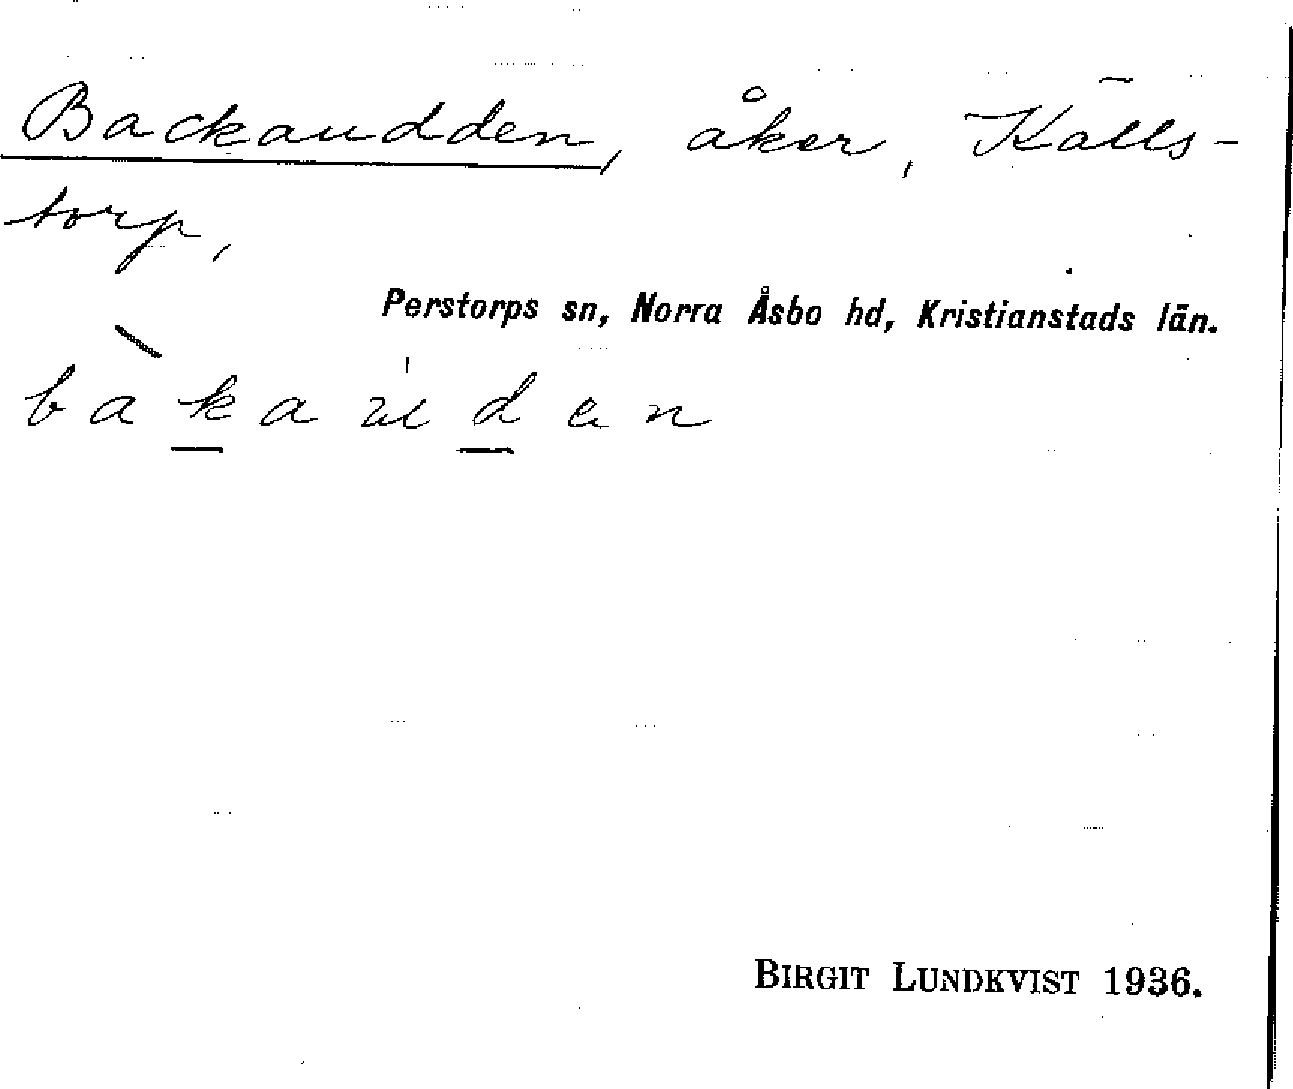 Backaudden, åker, Källs-
torp,
Perstorps sn, Norra Åsbo hd, Kristianstads län.
bàkaúden
BIRGIT LUNDKVIST 1936.